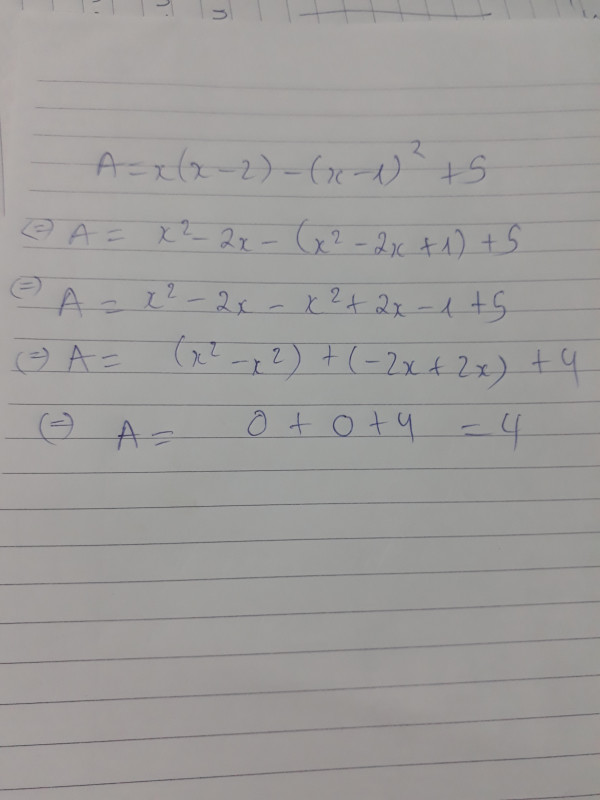 A = x(x - 2) - (x - 1)² + 5
(=) A = x² - 2x - (x² - 2x + 1) + 5
(=) A = x² - 2x - x² + 2x - 1 + 5
(=) A = (x² - x²) + (-2x + 2x) + 4
(=) A = 0 + 0 + 4 = 4